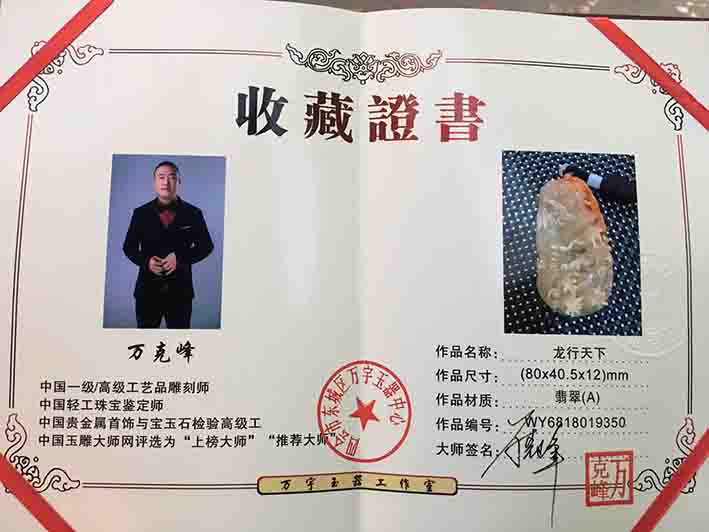 收藏證書
万克峰
中国一级/高级工艺品雕刻师
中国轻工珠宝鉴定师
中国贵金属首饰与宝玉石检验高级工
中国玉雕大师网评选为“上榜大师”“推荐大师”
作品名称: 龙行天下
作品尺寸: (80x40.5x12)mm
作品材质: 翡翠(A)
作品编号: WY6818019350
大师签名: 万克峰
四会市东城区万宇玉器中心
万克峰
万宇玉器工作室